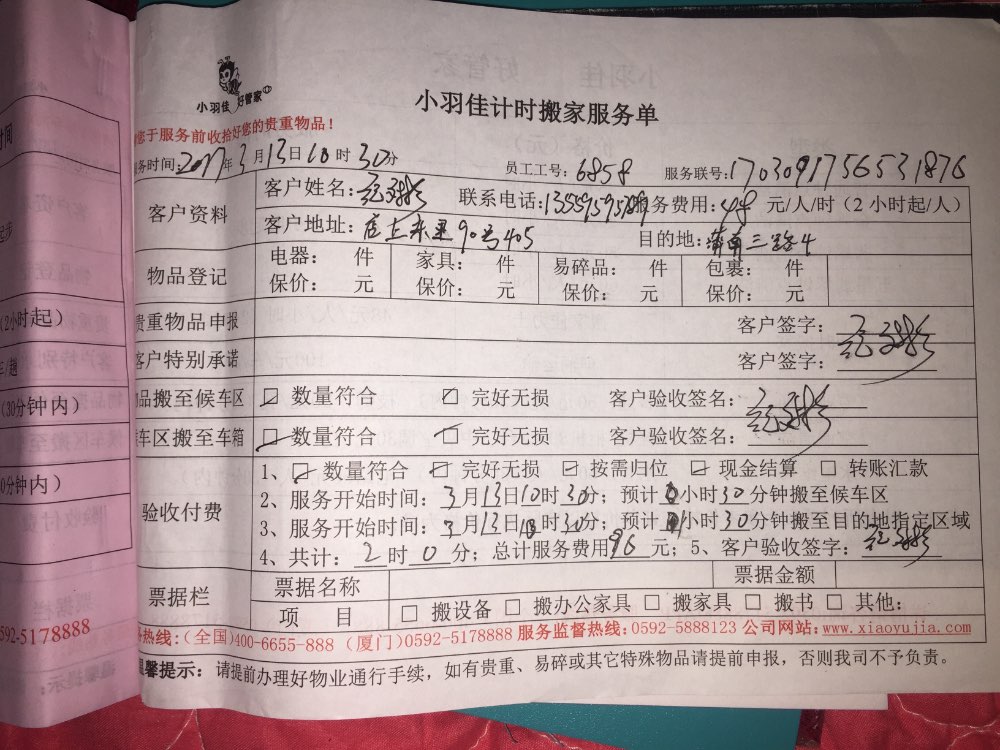 小羽佳 好管家
小羽佳计时搬家服务单
您于服务前收拾好您的贵重物品!
务时间:2017年3月13日10时30分 员工工号:6858 服务联号:1703091756531876
客户资料 客户姓名: 联系电话: 服务费用:48元/人/时(2小时起/人)
客户地址: 90号405 目的地: 三路4
物品登记 电器: 件 家具: 件 易碎品: 件 包裹: 件
保价: 元 保价: 元 保价: 元 保价: 元
贵重物品申报 客户签字:
客户特别承诺 客户签字:
品搬至候车区 ☑ 数量符合 ☑ 完好无损 客户验收签名:
车区搬至车箱 ☑ 数量符合 ☑ 完好无损 客户验收签名:
验收付费 1、☑ 数量符合 ☑ 完好无损 ☑ 按需归位 ☑ 现金结算 □ 转账汇款
2、服务开始时间:3月13日10时30分;预计0小时30分钟搬至候车区
3、服务开始时间:3月13日10时30分;预计1小时30分钟搬至目的地指定区域
4、共计:2时0分;总计服务费用96元;5、客户验收签字:
票据栏 票据名称 票据金额
项 目 □ 搬设备 □ 搬办公家具 □ 搬家具 □ 搬书 □ 其他:
热线:(全国)400-6655-888 (厦门)0592-5178888 服务监督热线:0592-5888123 公司网站:www.xiaoyujia.com
温馨提示:请提前办理好物业通行手续,如有贵重、易碎或其它特殊物品请提前申报,否则我司不予负责。
时间
起步
(2小时起)
车/趟
(30分钟内)
0分钟内)
0592-5178888